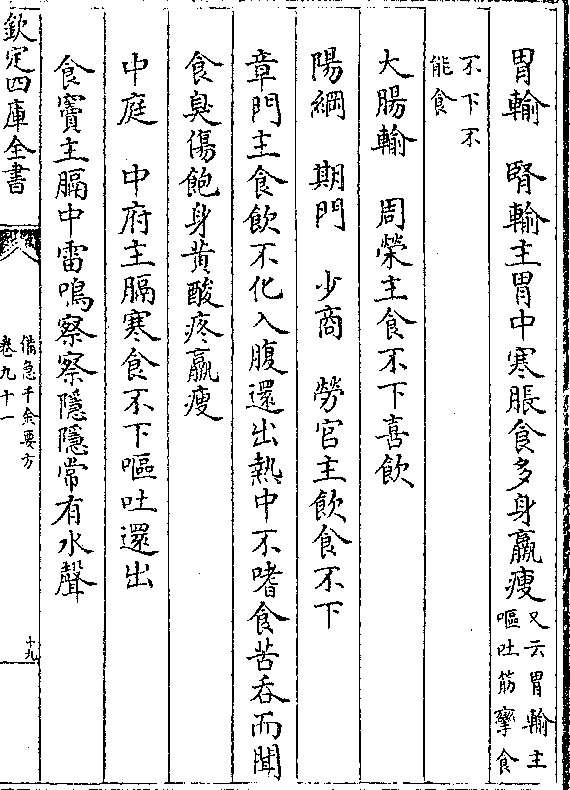 胃輸　腎輸主胃中寒脹食多身羸瘦又云胃輸主嘔吐筋攣食
不下不能食
大腸輸　周榮主食不下喜飲
陽綱　期門　少商　勞宫主飲食不下
章門主食飲不化入腹還出熱中不嗜食苦吞而聞
食臭傷飽身黃酸疼羸瘦
中庭　中府主膈寒食不下嘔吐還出
食竇主膈中雷鳴察察隱隱常有水聲
欽定四庫全書
備急千金要方
卷九十一
十九